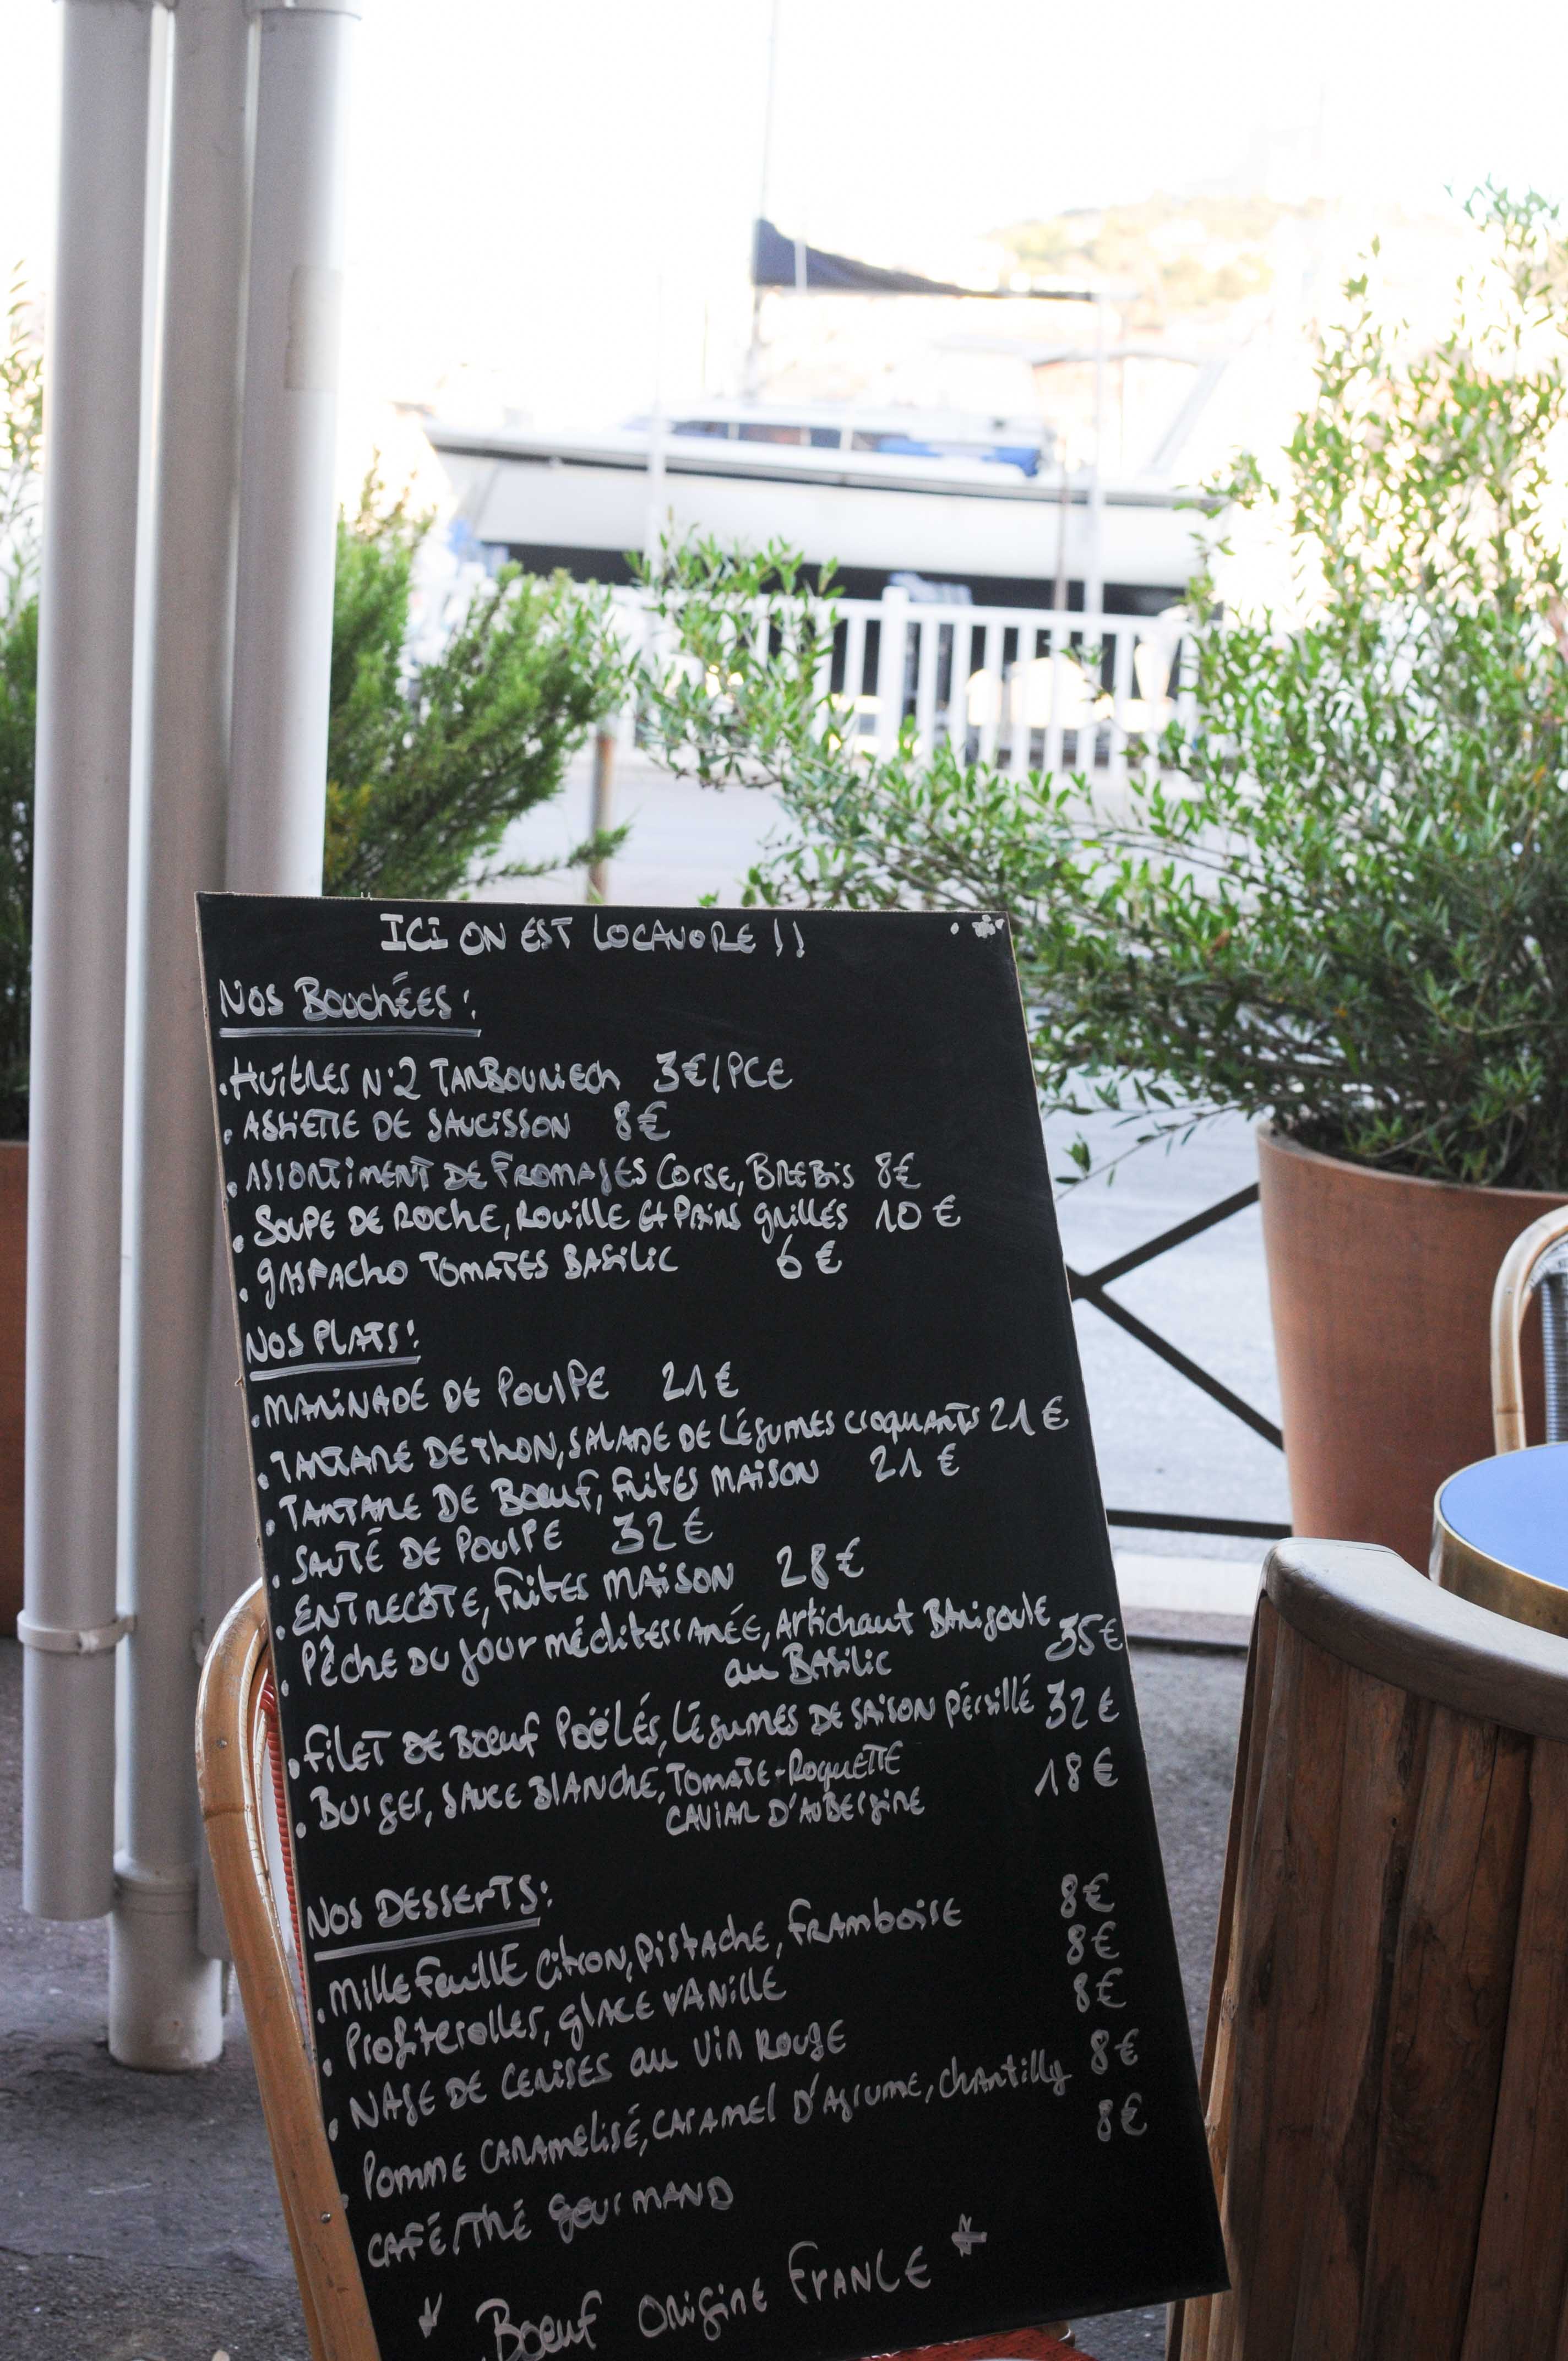 ICI ON EST LOCAVORE !!
NOS BOUCHÉES :
. HUÎTRES N°2 TARBOURIECH 3€/PCE
. ASSIETTE DE SAUCISSON 8€
. ASSORTIMENT DE FROMAGES CORSE, BREBIS 8€
. SOUPE DE ROCHE, ROUILLE Et PAINS grillés 10€
. gASPACHO TOMATES BASILIC 6€
NOS PLATS :
. MARINADE DE POULPE 21€
. TARTARE DE THON, SALADE DE LÉGUMES CROQUANTS 21€
. TARTARE DE BŒUF, FRITES MAISON 21€
. SAUTÉ DE POULPE 32€
. ENTRECÔTE, FRITES MAISON 28€
. PÊCHE DU JOUR MÉDITERRANÉE, ARTICHAUT BARIGOULE 35€
au BASILIC
. FILET DE BŒUF POËLÉS, LÉGUMES DE SAISON PÉRSILLÉ 32€
. BURGER, SAUCE BLANCHE, TOMATE-ROQUETTE 18€
CAVIAR D'AUBERGINE
NOS DESSERTS :
. MILLE FEUILLE CITRON, PISTACHE, FRAMBOISE 8€
. PROFITEROLLES, GLACE VANILLE 8€
. NAGE DE CERISES au VIN ROUGE 8€
. POMME CARAMELISÉ, CARAMEL D'AGRUME, CHANTILLY 8€
CAFÉ/THÉ GOURMAND 8€
* BŒUF ORIGINE FRANCE *